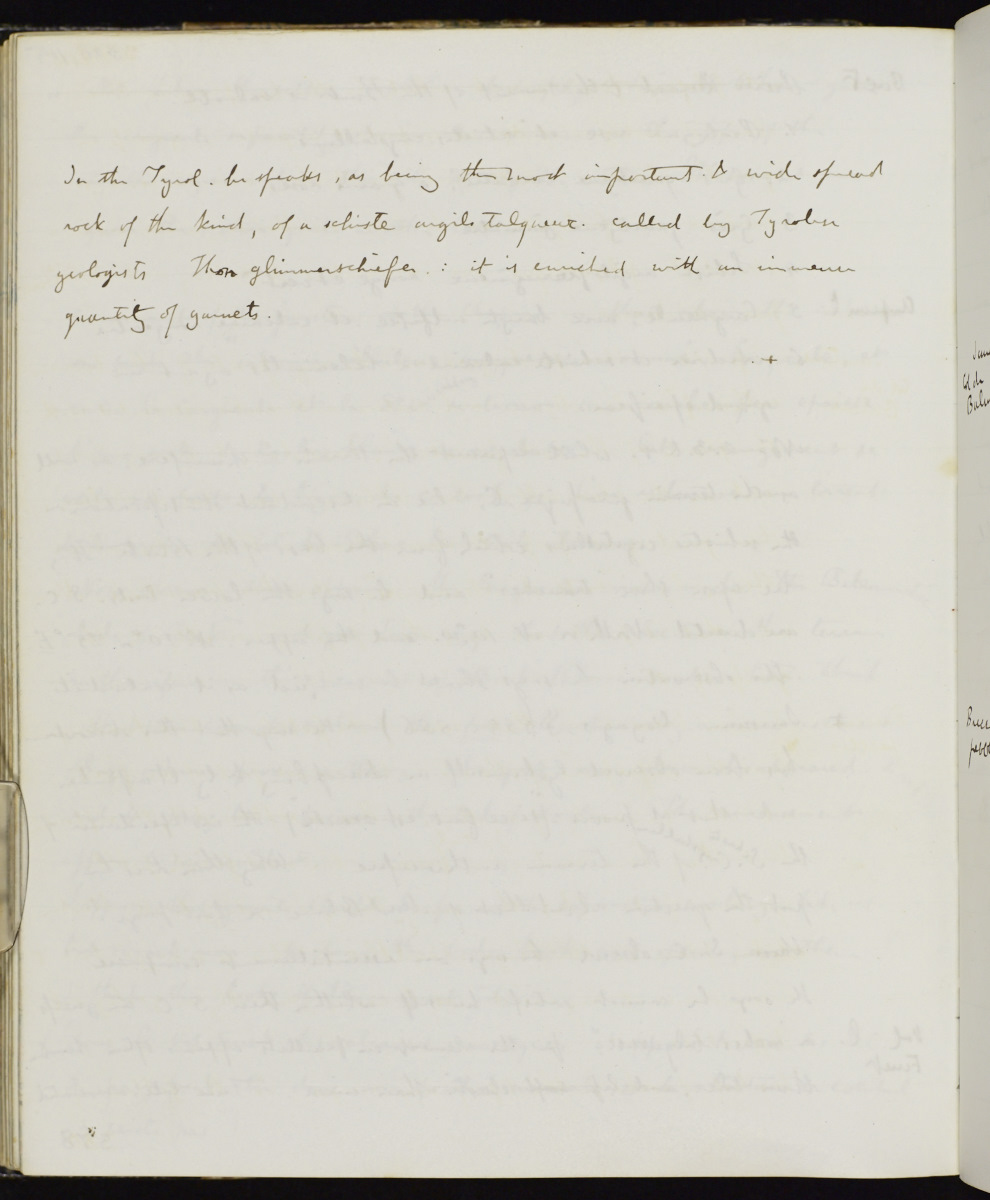 In the Tyrol. he speaks, as being the most important. & wide spread
rock of the kind, of a schiste argilo talqueux. called by Tyrolese
geologists Thon glimmerschiefer. : it is enriched with an immense
quantity of garnets.
+
Col du